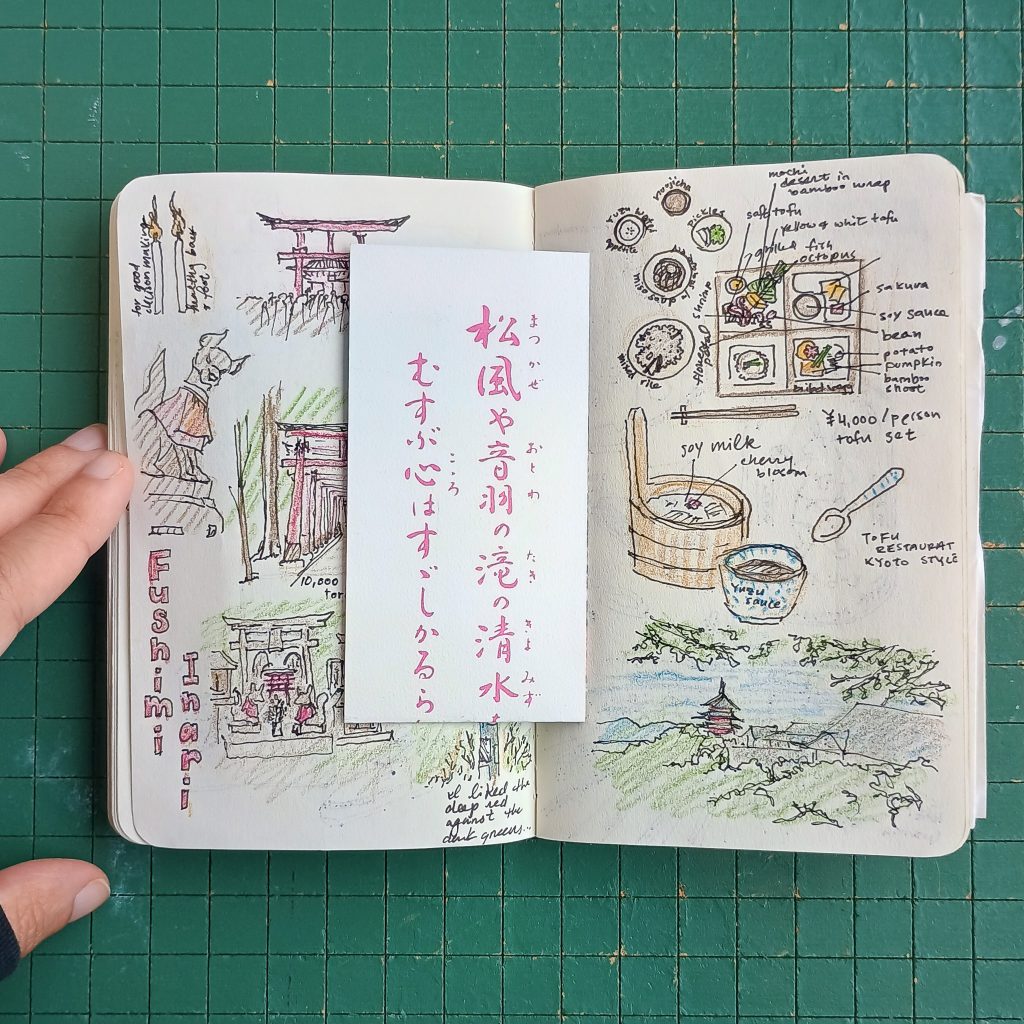 for good
decision making
healthy back
+ foot
納
10,000
tor
Fushimi
Inari
I liked the
deep red
against the
dark greens...
まつかぜ おとわ たき きよみず
松風や音羽の滝の清水
こころ
むすぶ心はすゞしかるら
hoojicha
yuzu water
pickles
mixed rice
shrimp
mochi
desert in
bamboo wrap
soft tofu
yellow & whit tofu
grilled fish
octopus
sakura
soy sauce
bean
potato
pumpkin
bamboo
shoot
¥4,000/person
tofu set
soy milk
cherry
blosom
yuzu
sauce
TOFU
RESTAURAT
KYOTO STYLE